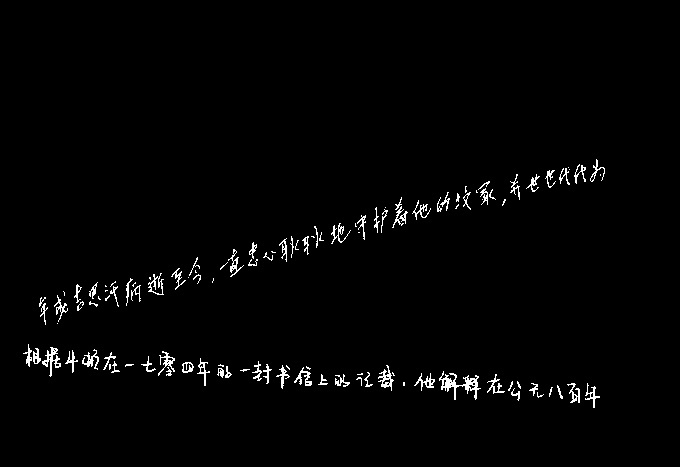 年成吉思汗病逝至今，一直忠心耿耿地守护着他的坟冢，并世世代代为
根据牛顿在一七零四年的一封书信上的记载，他解释在公元八百年